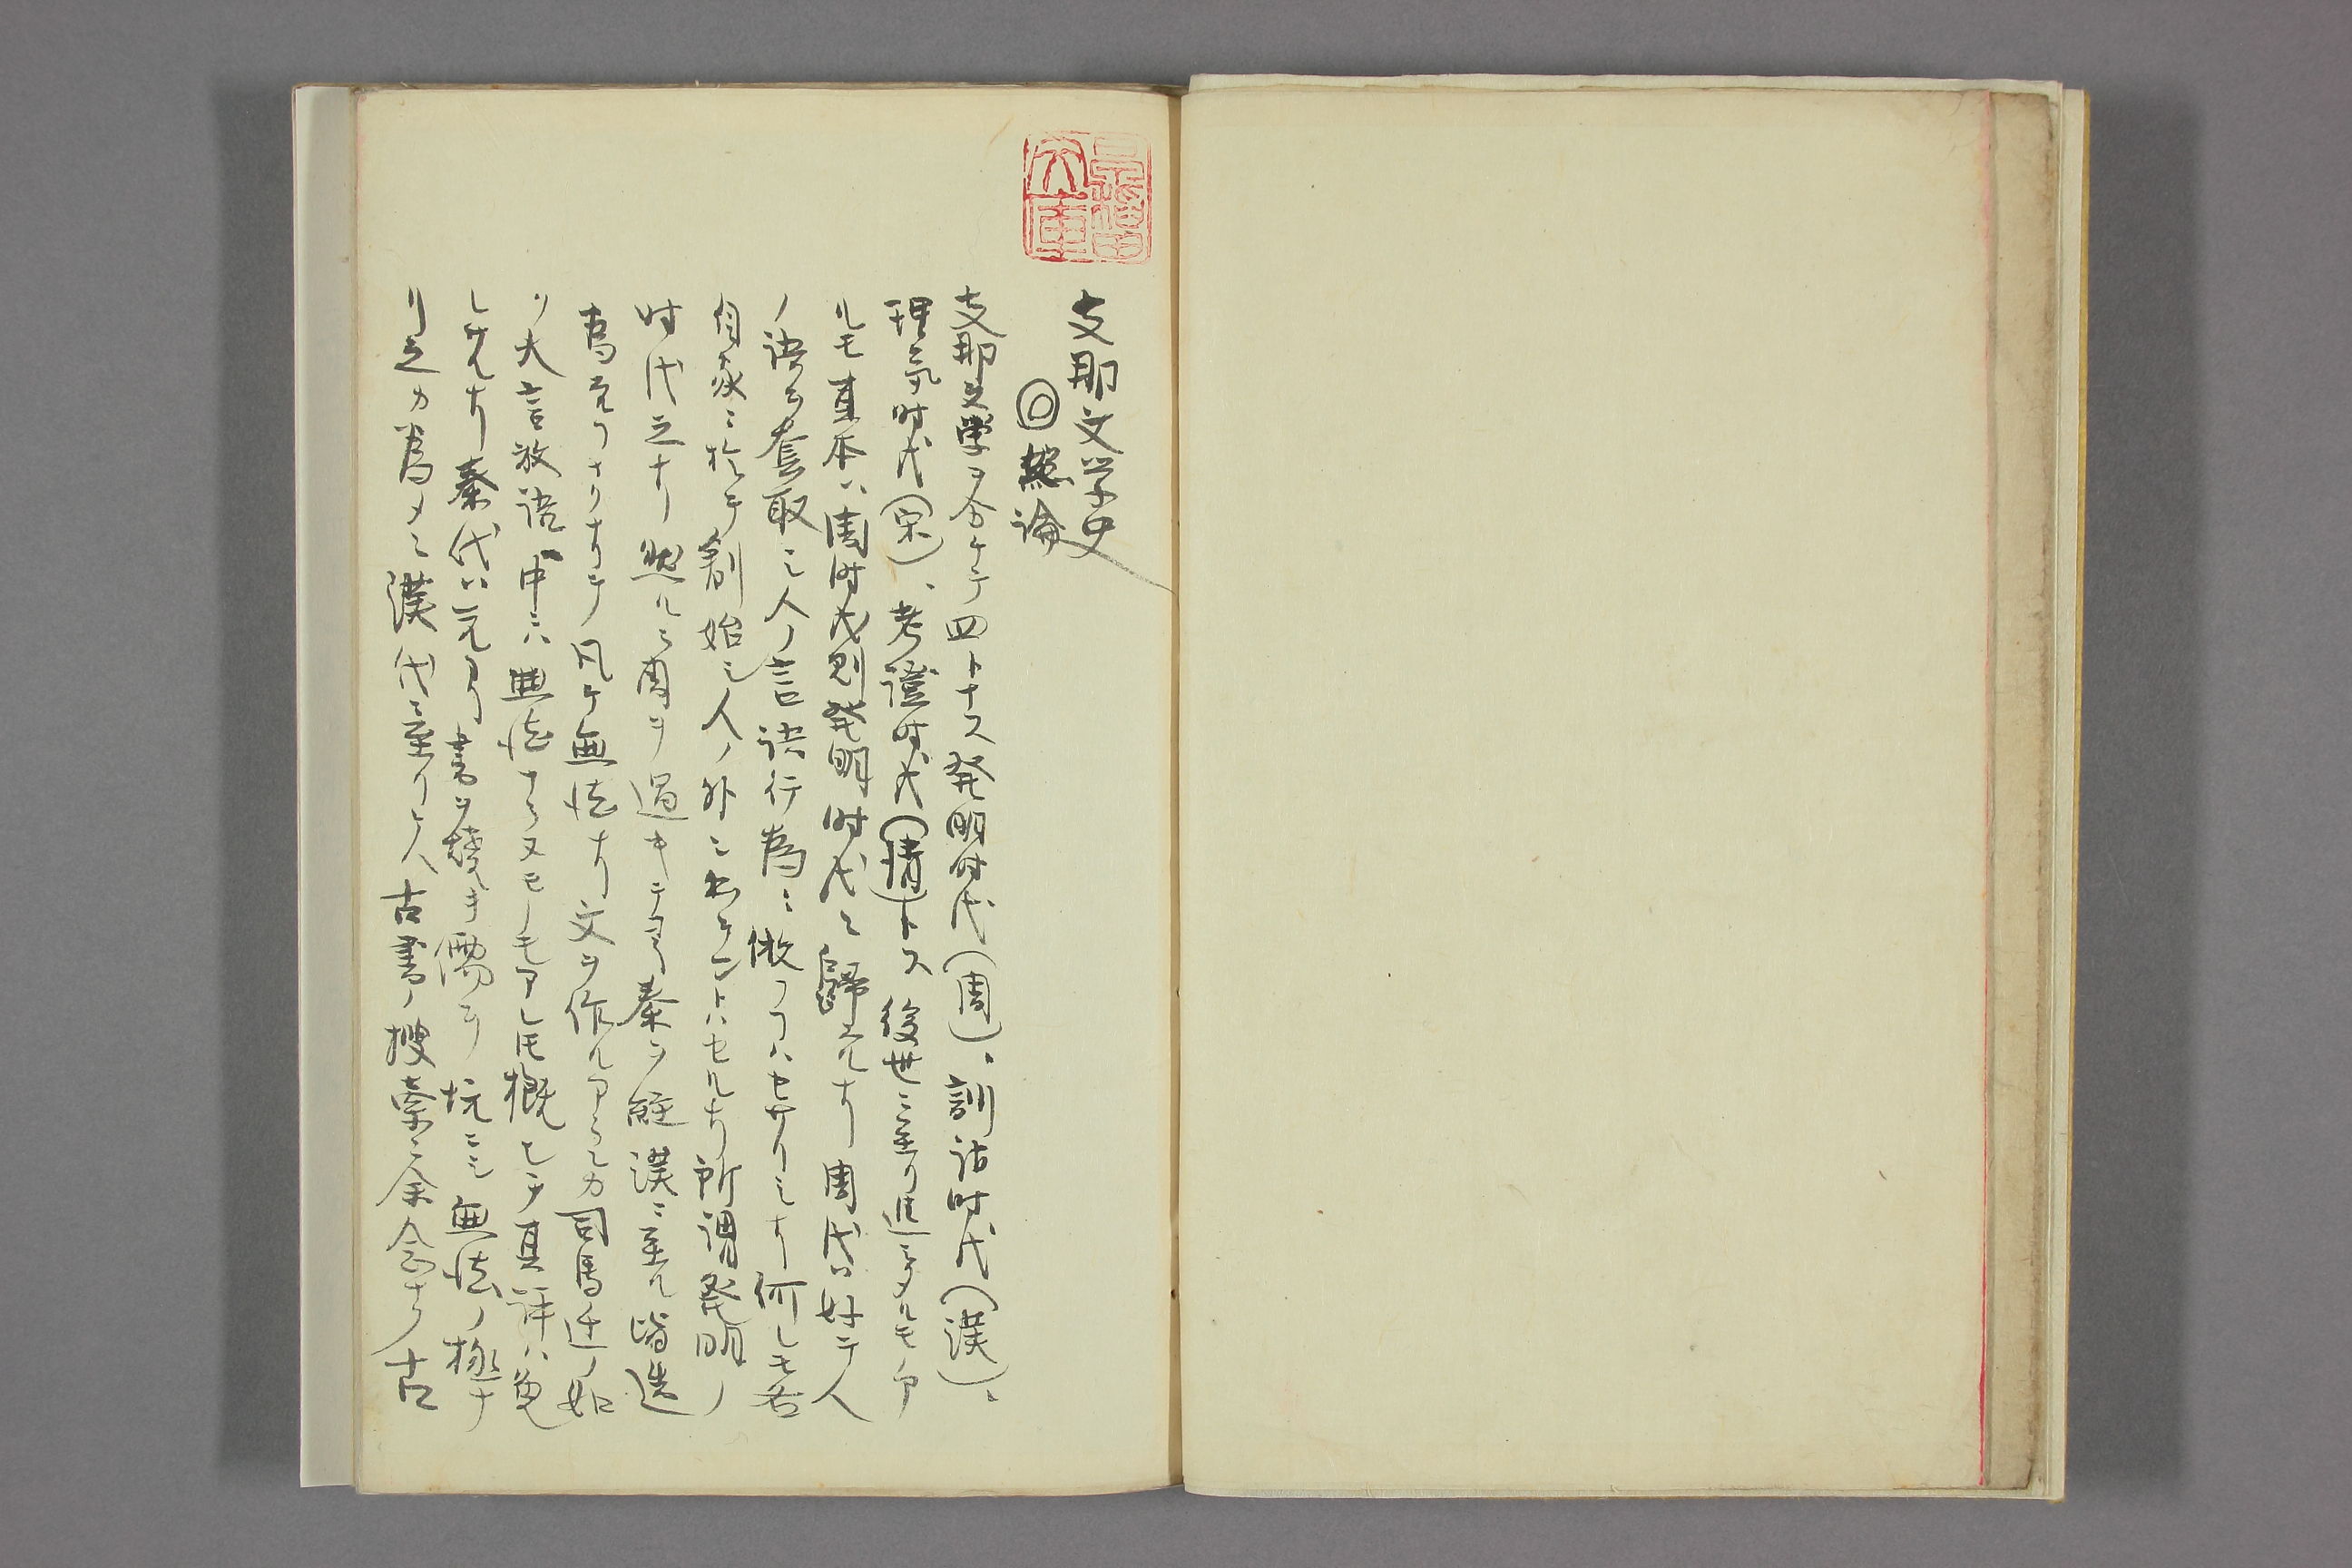 支那文学史
◎總論
支那文學ヲ分ケテ四トナス発明時代(周)、訓詁時代(漢)、
理氣时代(宋)、考證时代(清)トス後世ニ至リ進ミタルモア
ルモ其本ハ周时代則発明时代ニ歸スルナリ周代ハ好テ人
ノ語ヲ套取シ人ノ言語行為ニ倣フヿハセサリシナリ何レモ各
自家ニ於テ創始シ人ノ外ニ出ケントハセルナリ所謂発明ノ
时代之ナリ然ルニ周ヲ過キテヨリ秦ヲ経漢ニ至ル皆造
為セルナリ凡ケ無法ナリ文ヲ作ルアラレカ司馬迁ノ如
リ大言放語中ニハ無法ナラヌモノモアレ圧概シテ其評ハ免
レサルナリ秦代ハ元ヨリ書ヲ燒キ儒ヲ坑ニシ無法ノ極ナ
リ之カ為メニ漢代ニ至リテハ古書ノ搜索ニ余念ナク古
文庫